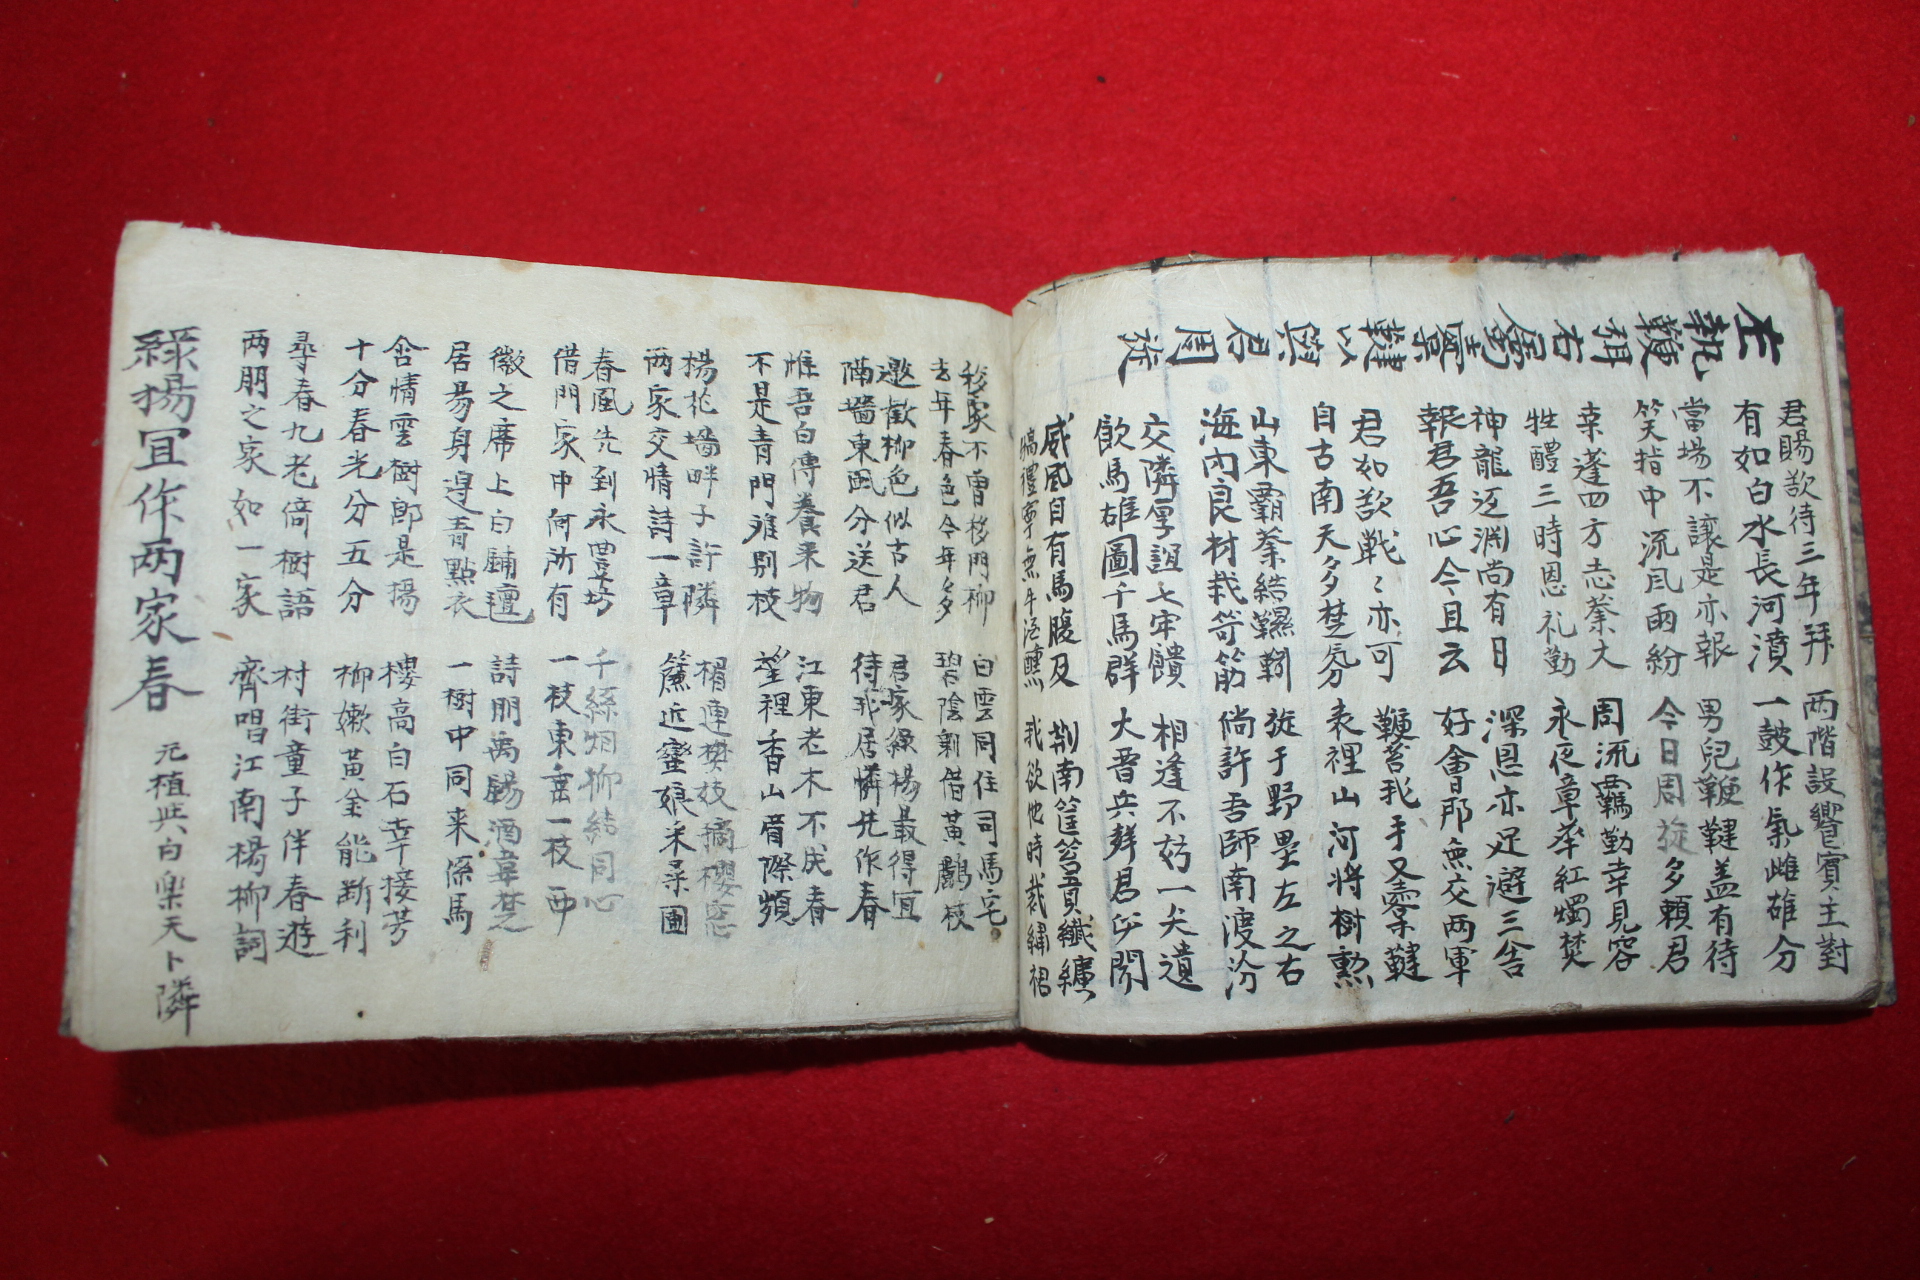 左執鞭弭右屬櫜鞬以與君周旋
君賜欲待三年拜 両階設響賓主對
有如白水長河濆 一鼓作氣雌雄分
當場不讓是亦報 男兒鞭鞬盖有待
笑指中流風雨紛 今日周旋多賴君
桒蓬四方志業大 周流覊勤幸見容
牲醴三時恩礼勤 永夜章華紅燭焚
神龍返渊尚有日 深恩亦足避三舍
報君吾心今且云 好會那無交两軍
君如欲戰〻亦可 鞭苔我手又櫜鞬
自古南天多楚氛 表裡山河將樹勲
山東霸業結韅靷 旋于野壘左之右
海内良材我笴筋 倘許吾師南渡汾
交隣厚誼七牢饋 相逢不妨一矢遺
飲馬雄圖千馬群 大晋兵鋒君必聞
威風自有馬腹及 荆南筐筥貢纖纊
犒禮寧無牛酒醺 我欲他時裁繡裙
移家不曾移門柳 白雲同住司馬宅
去年春色今年多 碧陰新借黃鸝枝
邀歡柳色似古人 君家綠楊最得宜
隔墻東風分送君 待我居憐共作春
惟吾白傅養来物 江東老木不成春
不是青門雅別枝 望裡香山眉際頻
楊花墻畔子許隣 楣連樊妓摘櫻窓
两家交情詩一章 簾近蠻娘采桒圃
春風先到永豊坊 千絲烟柳結同心
借門家中何所有 一枝東垂一枝西
微之席上白鋪氊 詩朋禹錫酒韋楚
居易身邊青點衣 一樹中同来係馬
含情雲樹郎是楊 樓高白石幸接芳
十分春光分五分 柳嫰黃金能断利
尋春九老倚樹語 村街童子伴春遊
两朋之家如一家 齊唱江南楊柳詞
綠揚宜作两家春 元稹共白樂天卜隣